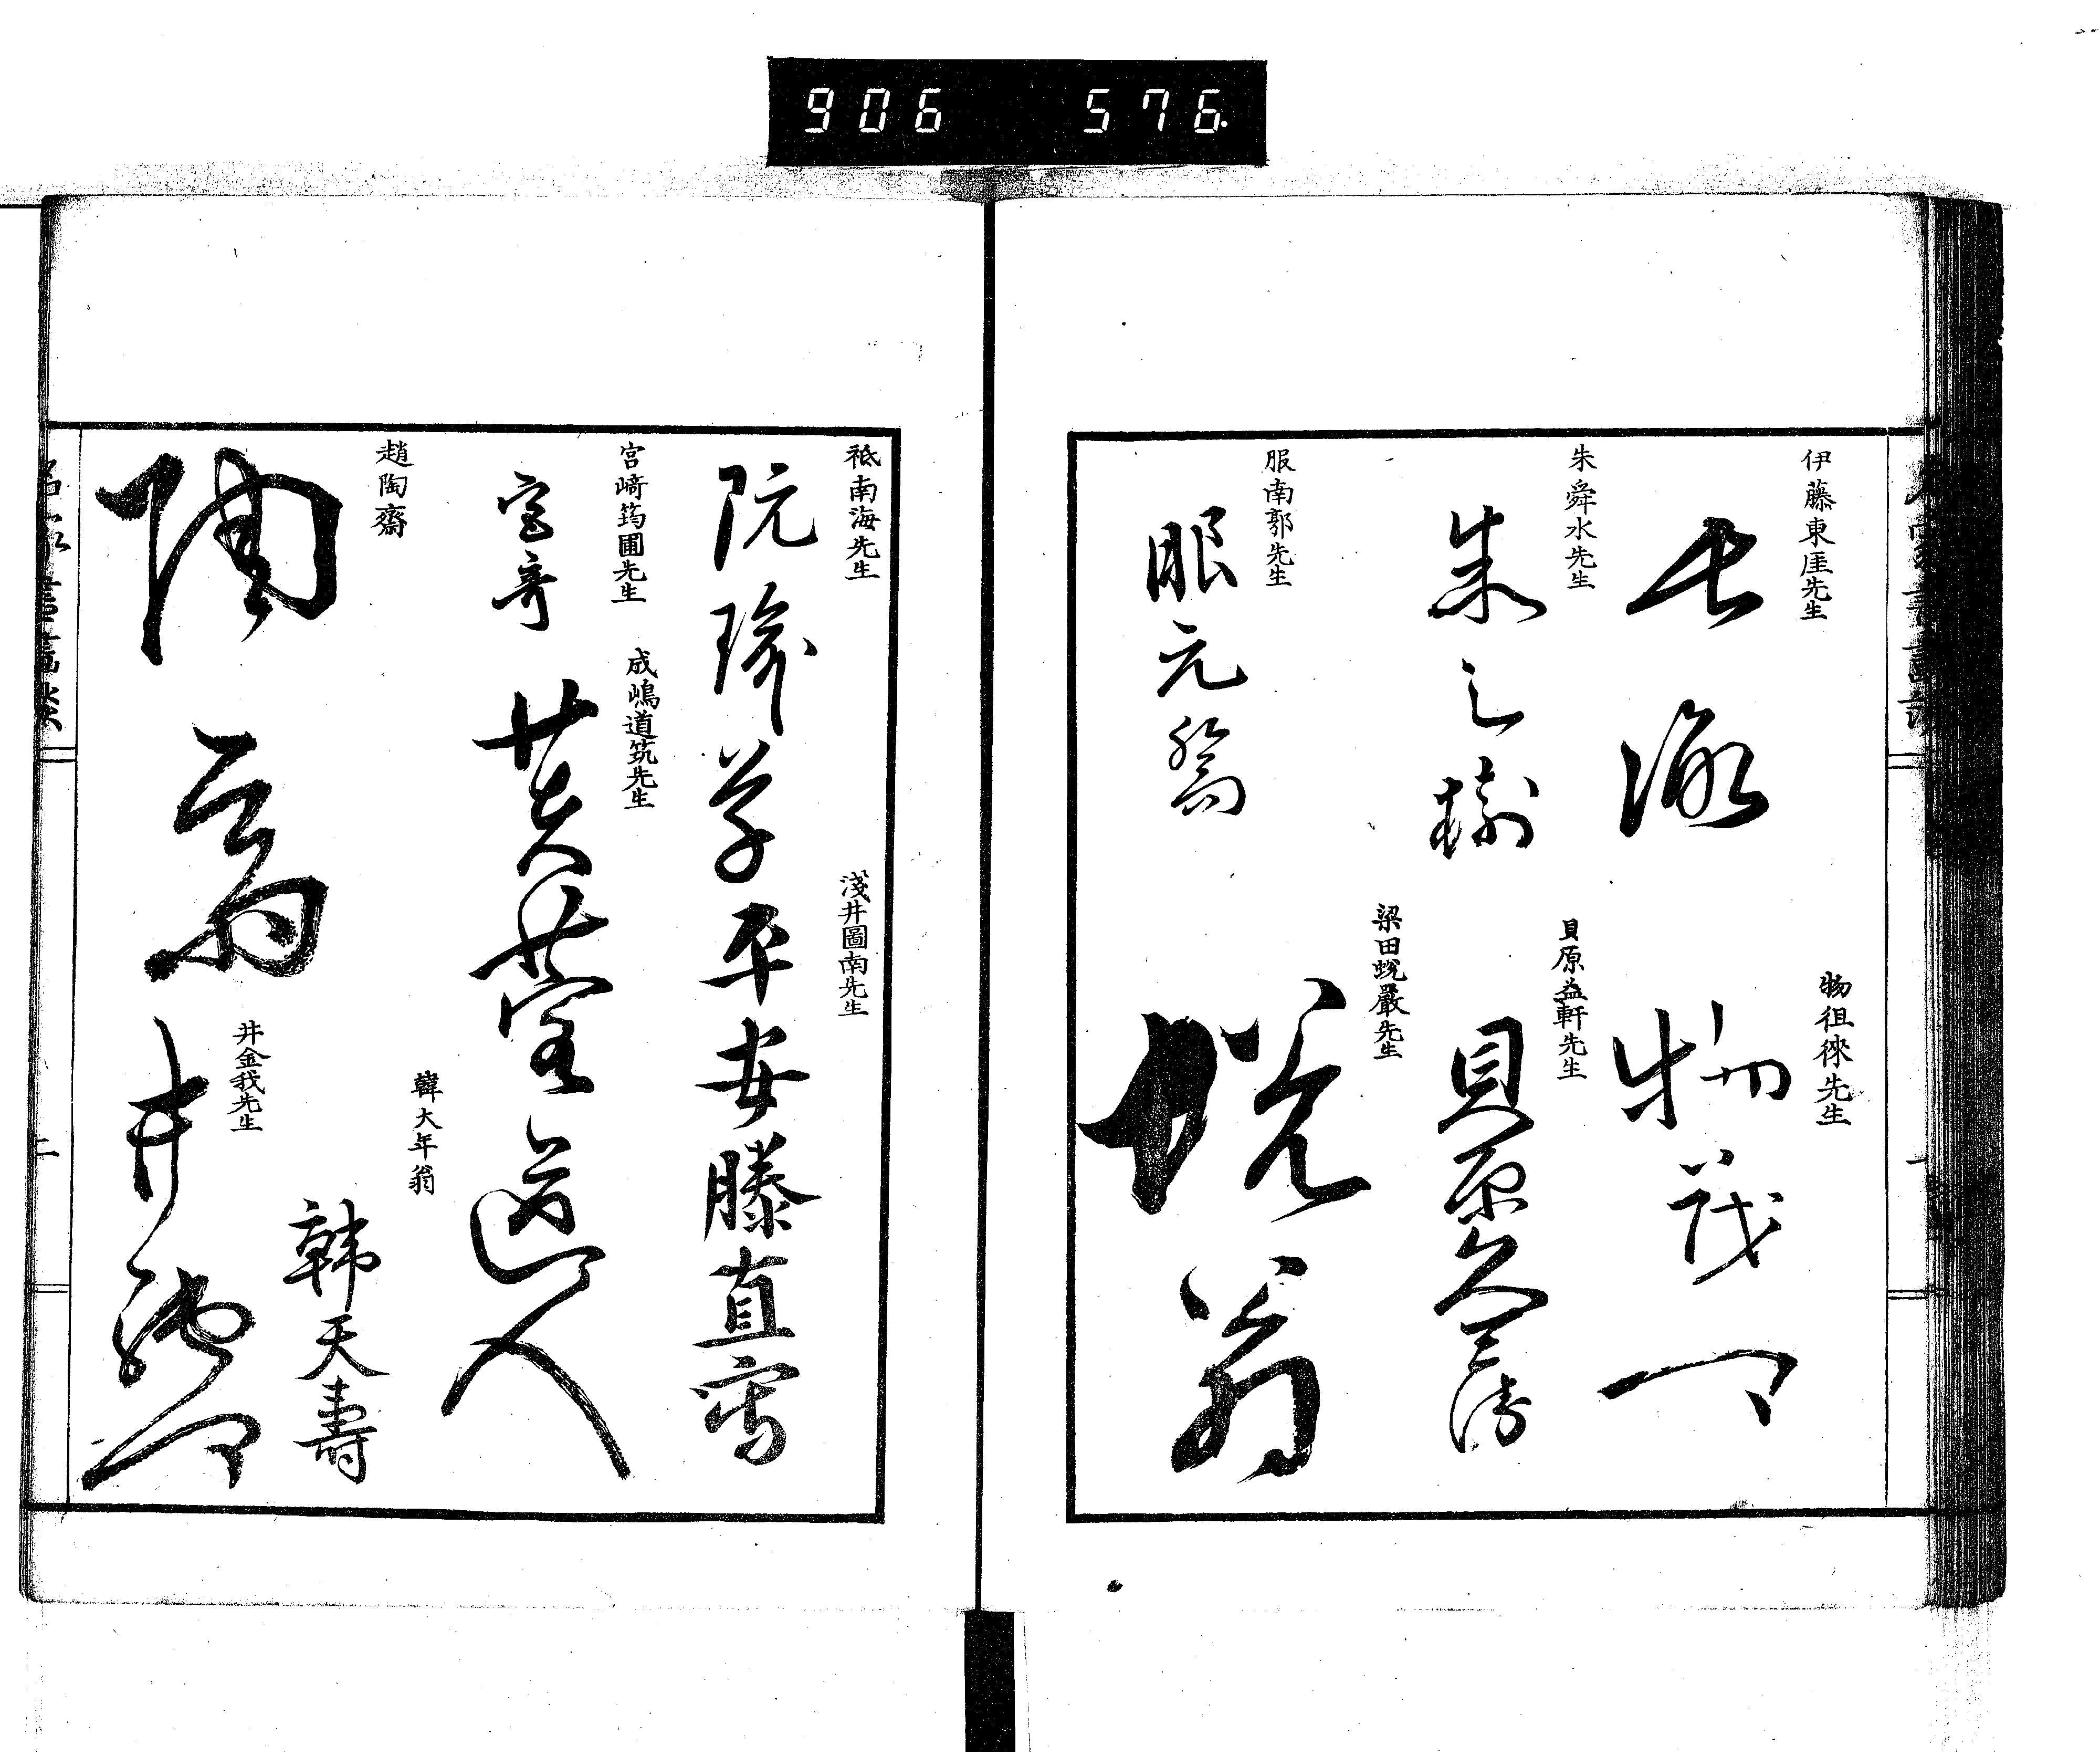 906 576
伊藤東厓先生
長胤
物徂徠先生
物茂卿
朱舜水先生
朱之瑜
貝原益軒先生
貝原久兵衛
服南郭先生
服元喬
梁田蛻巖先生
蛻翁
祇南海先生
阮瑜草
淺井圖南先生
平安滕直寫
宮﨑筠圃先生
宮奇
成嶋道筑先生
道人
趙陶齋
陶齋
韓大年翁
韓天壽
井金我先生
井
二